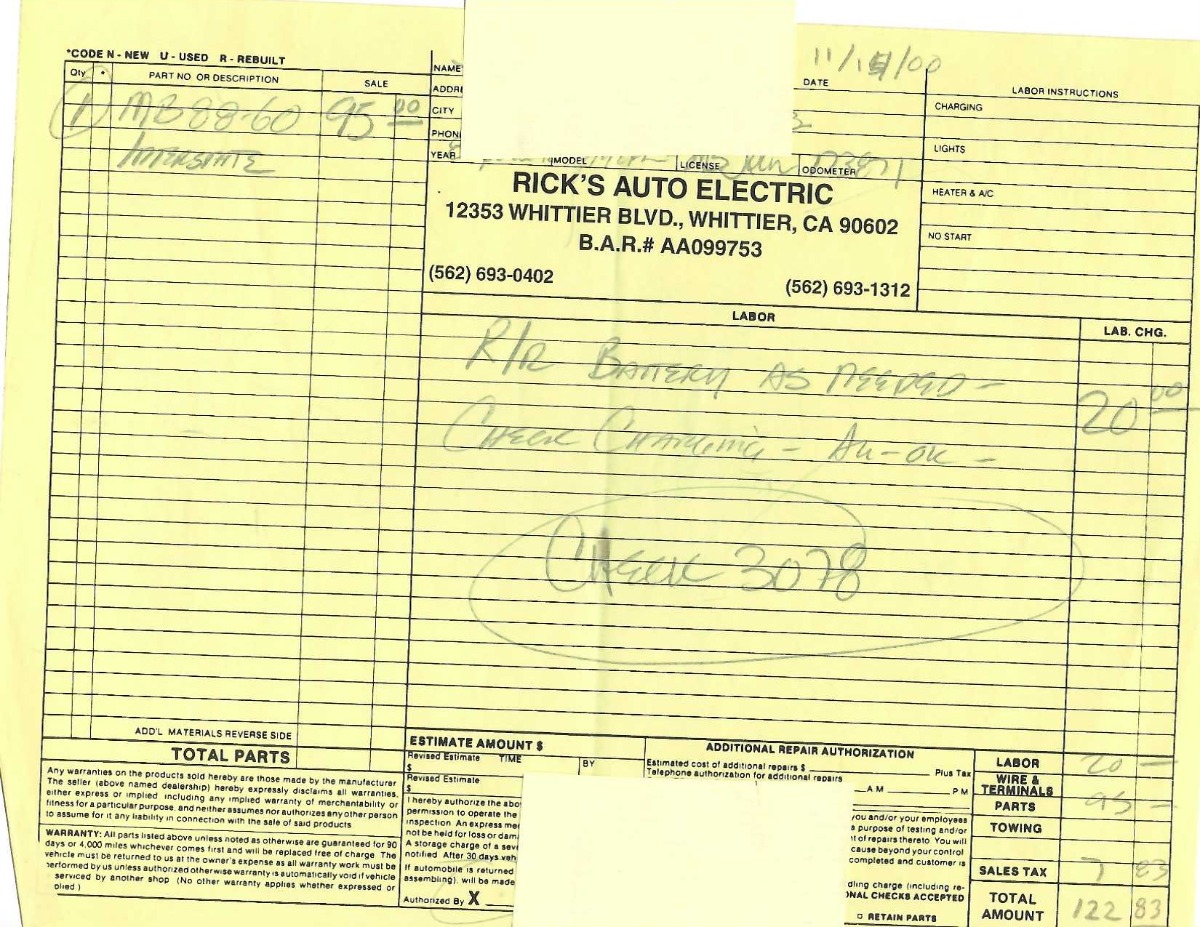 *CODE N - NEW U - USED R - REBUILT
Qty * PART NO OR DESCRIPTION SALE
1 MB 88-60 95 00
INTERSTATE
NAME
ADDR
CITY
PHON
YEAR MODEL LICENSE ODOMETER
11/ /00
DATE
LABOR INSTRUCTIONS
CHARGING
LIGHTS
HEATER & A/C
NO START
RICK'S AUTO ELECTRIC
12353 WHITTIER BLVD., WHITTIER, CA 90602
B.A.R.# AA099753
(562) 693-0402 (562) 693-1312
LABOR LAB. CHG.
R/R BATTERY AS NEEDED - 20 00
CHECK CHARGING - AU-OK -
CHECK 3078
ADD'L MATERIALS REVERSE SIDE
TOTAL PARTS
Any warranties on the products sold hereby are those made by the manufacturer
The seller (above named dealership) hereby expressly disclaims all warranties,
either express or implied including any implied warranty of merchantability or
fitness for a particular purpose, and neither assumes nor authorizes any other person
to assume for it any liability in connection with the sale of said products
WARRANTY: All parts listed above unless noted as otherwise are guaranteed for 90
days or 4,000 miles whichever comes first and will be replaced free of charge. The
vehicle must be returned to us at the owner's expense as all warranty work must be
performed by us unless authorized otherwise warranty is automatically void if vehicle
serviced by another shop (No other warranty applies whether expressed or
plied)
ESTIMATE AMOUNT $
Revised Estimate TIME BY
$
Revised Estimate
$
I hereby authorize the abo
permission to operate the
inspection. An express me
not be held for loss or dam
A storage charge of a sev
notified. After 30 days veh
If automobile is returned
assembling), will be made
Authorized By X
ADDITIONAL REPAIR AUTHORIZATION
Estimated cost of additional repairs $ Plus Tax
Telephone authorization for additional repairs
AM PM
you and/or your employees
a purpose of testing and/or
t of repairs thereto. You will
cause beyond your control
completed and customer is
dling charge (including re-
ONAL CHECKS ACCEPTED
RETAIN PARTS
LABOR 20 —
WIRE &
TERMINALS
PARTS 95 —
TOWING
SALES TAX 7 83
TOTAL
AMOUNT 122 83